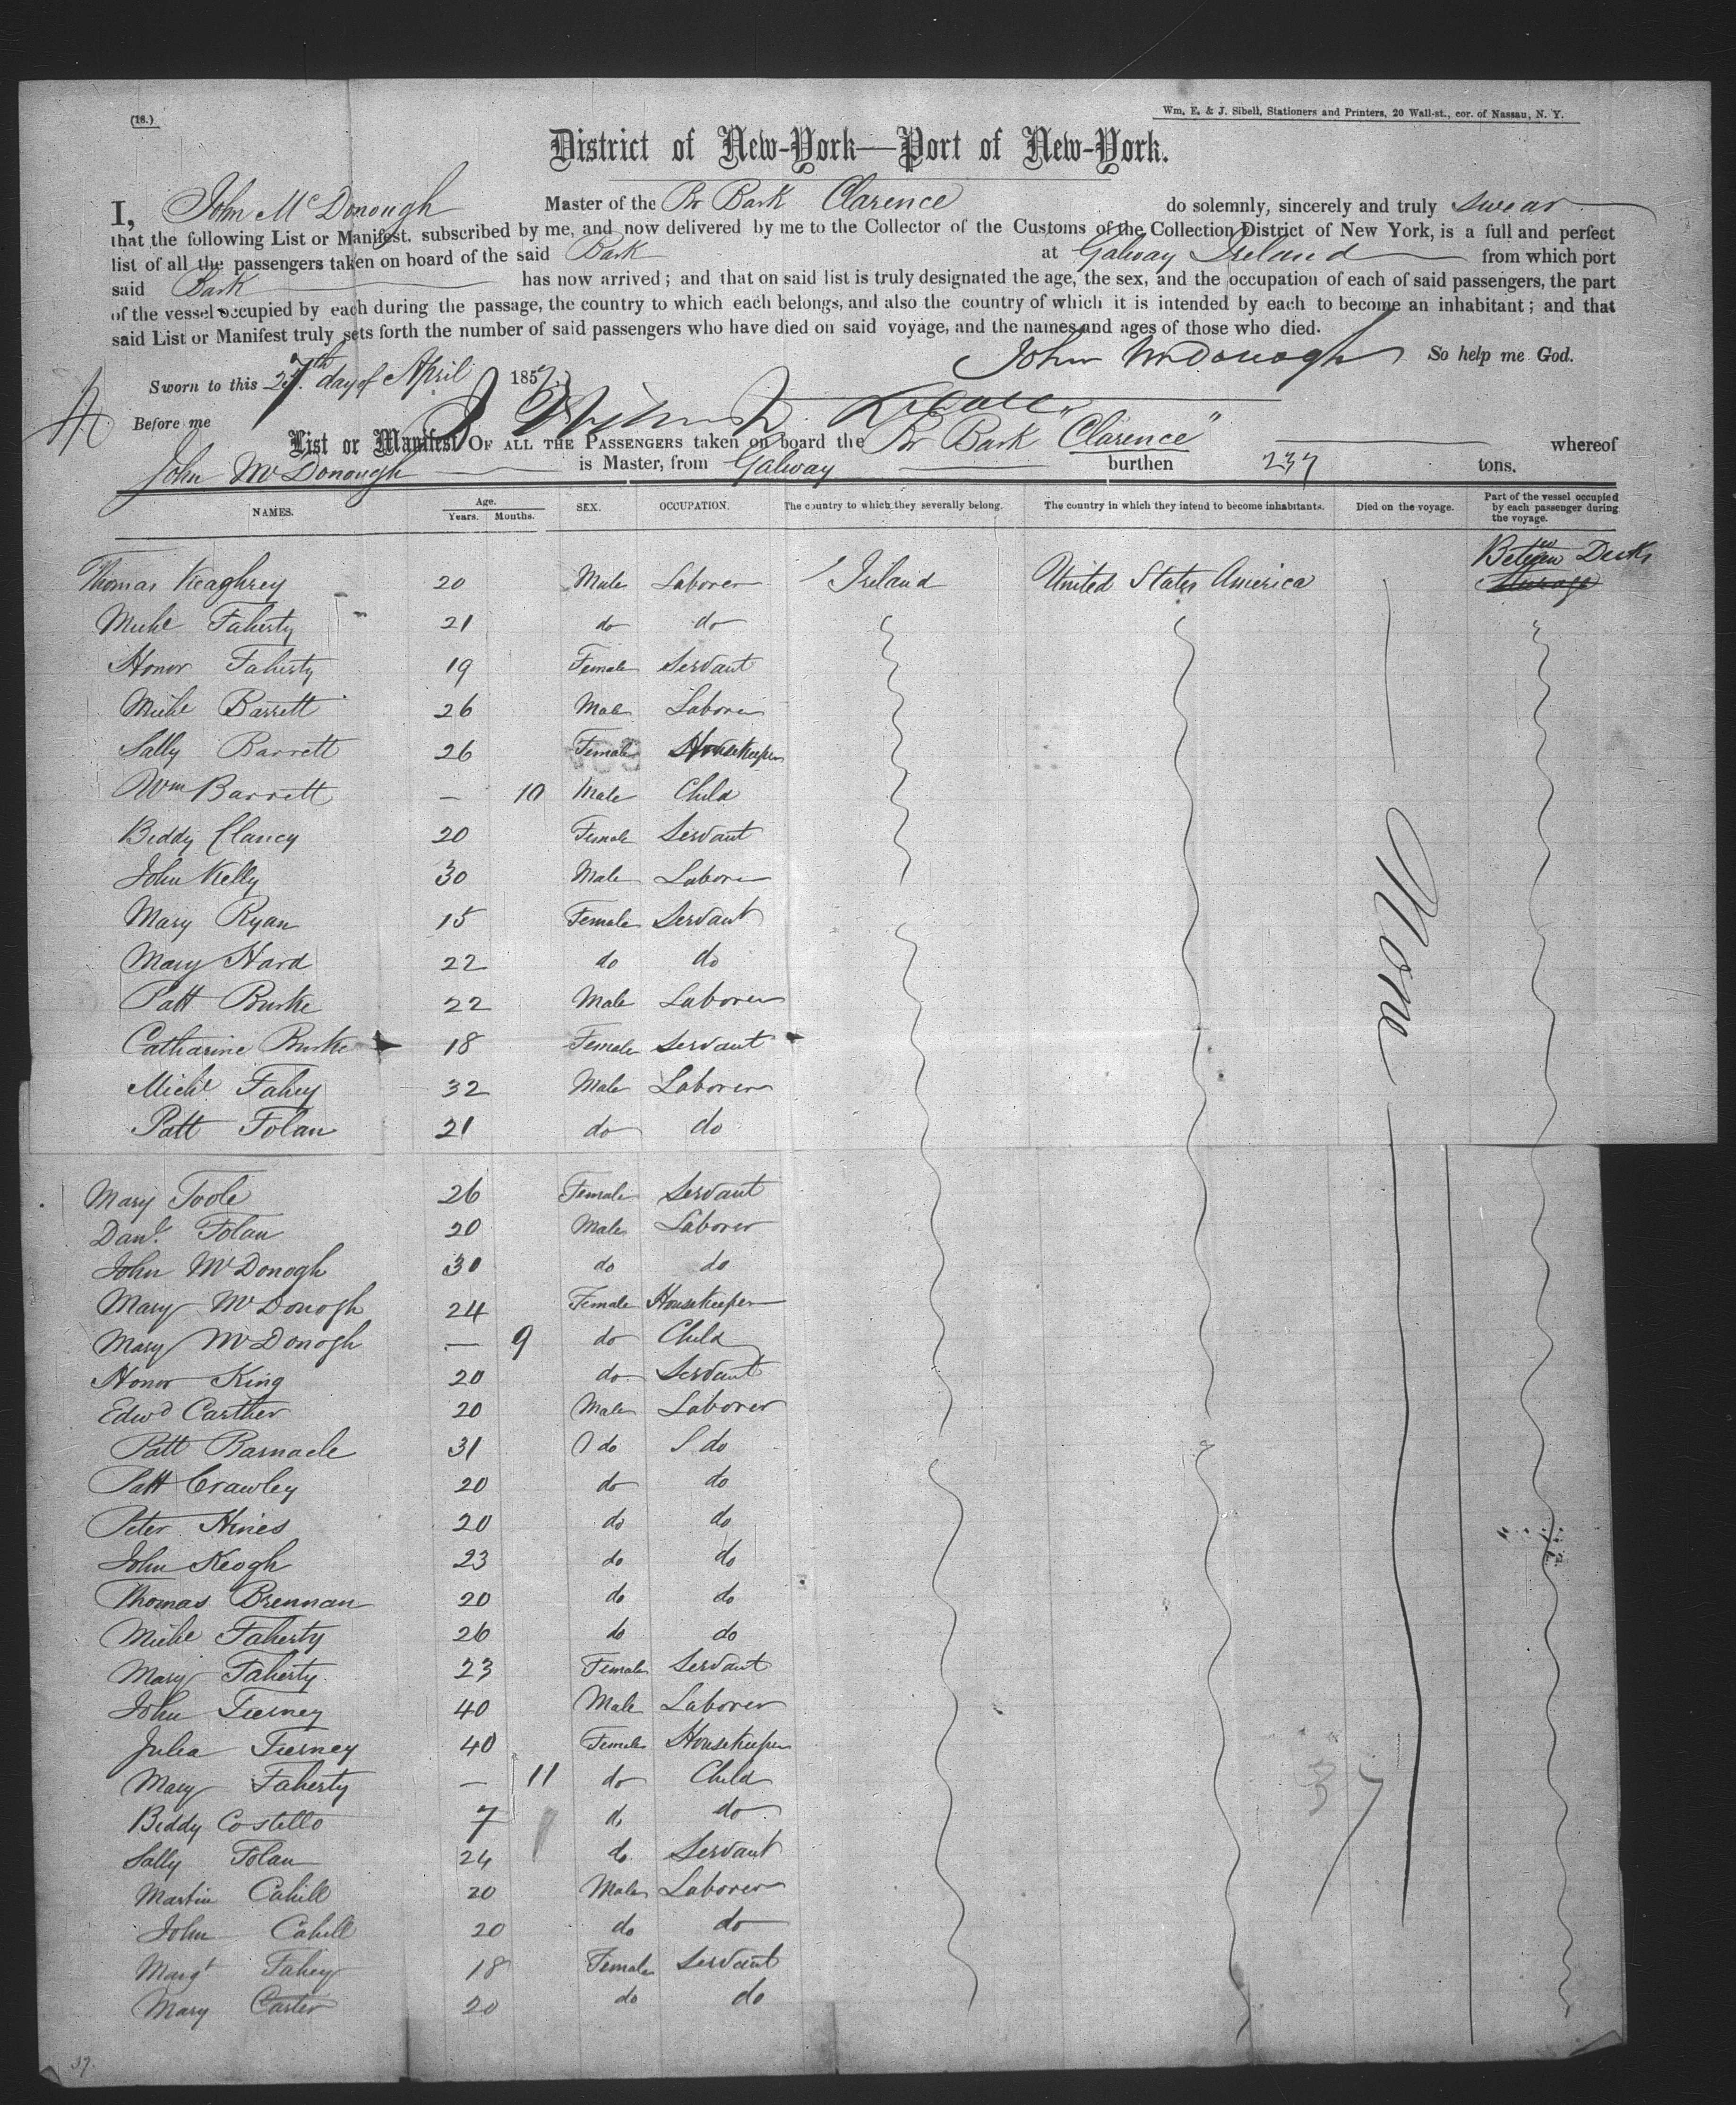 (18.)
Wm. E. & J. Sibell, Stationers and Printers, 20 Wall-st., cor. of Nassau, N. Y.
District of New-York—Port of New-York.
I, John McDonough Master of the Br Bark Clarence do solemnly, sincerely and truly swear
that the following List or Manifest, subscribed by me, and now delivered by me to the Collector of the Customs of the Collection District of New York, is a full and perfect
list of all the passengers taken on board of the said Bark at Galway Ireland from which port
said Bark has now arrived; and that on said list is truly designated the age, the sex, and the occupation of each of said passengers, the part
of the vessel occupied by each during the passage, the country to which each belongs, and also the country of which it is intended by each to become an inhabitant; and that
said List or Manifest truly sets forth the number of said passengers who have died on said voyage, and the names and ages of those who died.
John McDonough So help me God.
Sworn to this 27th day of April 1857
Before me
List or Manifest OF ALL THE PASSENGERS taken on board the Br Bark "Clarence" whereof
John McDonough is Master, from Galway burthen 237 tons.
NAMES. Age. Years. Months. SEX. OCCUPATION. The country to which they severally belong. The country in which they intend to become inhabitants. Died on the voyage. Part of the vessel occupied by each passenger during the voyage.
Between Decks
Thomas Keaghrey 20 Male Laborer Ireland United States America
Michl Faherty 21 do do
Honor Faherty 19 Female Servant
Michl Barrett 26 Male Laborer
Sally Barrett 26 Female Housekeeper
Wm Barrett — 10 Male Child
Biddy Clancy 20 Female Servant
John Kelly 30 Male Laborer
Mary Ryan 15 Female Servant
Mary Hard 22 do do
None
Patt Burke 22 Male Laborer
Catharine Burke 18 Female Servant
Michl Fahey 32 Male Laborer
Patt Folan 21 do do
Mary Toole 26 Female Servant
Danl. Folan 20 Male Laborer
John McDonogh 30 do do
Mary McDonogh 24 Female Housekeeper
Mary McDonogh — 9 do Child
Honor King 20 do Servant
Edwd Carther 20 Male Laborer
Patt Barnacle 31 do do
Patt Crawley 20 do do
Peter Hines 20 do do
John Keogh 23 do do
Thomas Brennan 20 do do
Michl Faherty 26 do do
Mary Faherty 23 Female Servant
John Tierney 40 Male Laborer
Julia Tierney 40 Female Housekeeper
Mary Faherty — 11 do Child
37
Biddy Costello 7 do do
Sally Folan 24 do Servant
Martin Cahill 20 Male Laborer
John Cahill 20 do do
Margt Fahey 18 Female Servant
Mary Carter 20 do do
37